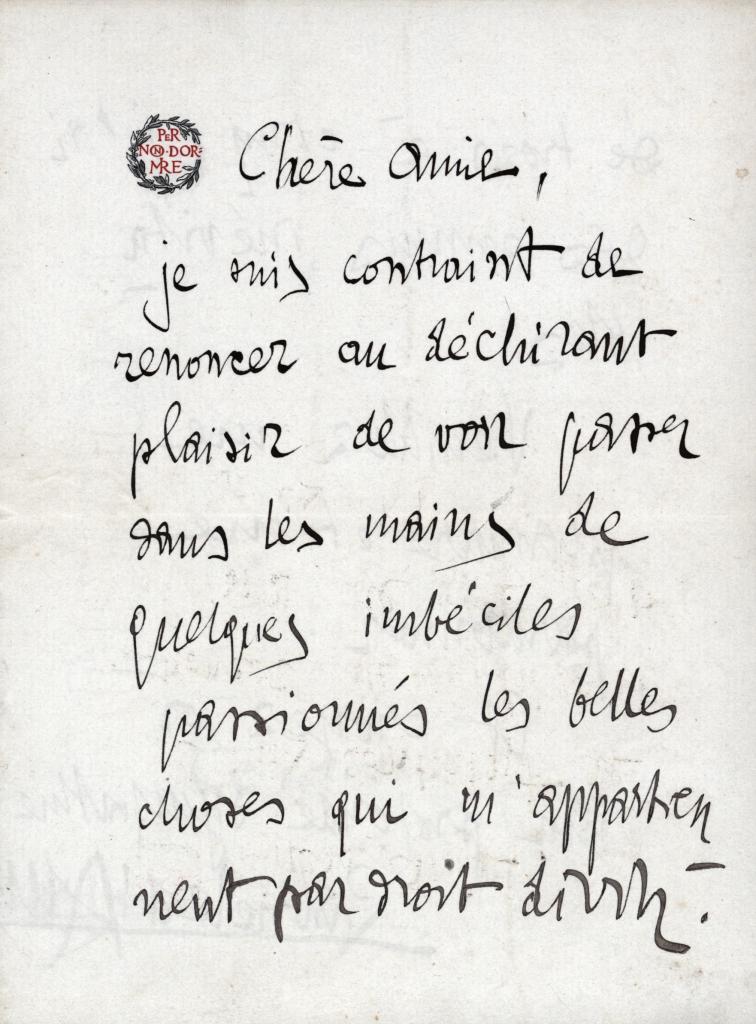 PER
NON·DOR=
MIRE
Chère amie,
je suis contraint de
renoncer au déchirant
plaisir de voir passer
dans les mains de
quelques imbéciles
passionnés les belles
choses qui m'appartien
nent par droit divin.